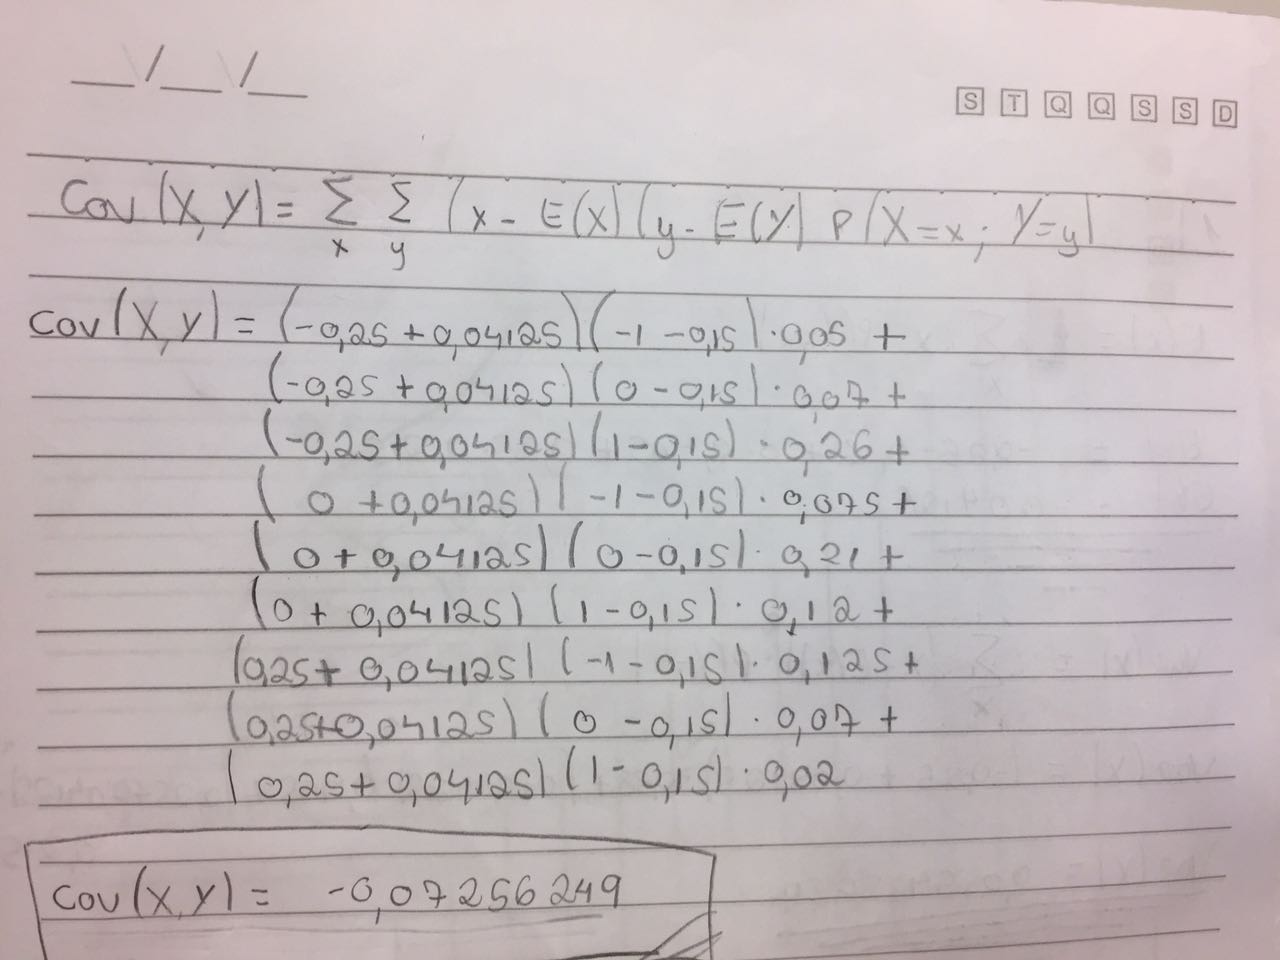 __/__/__
S T Q Q S S D
Cov(X,Y) = Σ Σ (x - E(X) (y - E(Y) P(X=x; Y=y)
x y
Cov(X,Y) = (-0,25 + 0,04125)(-1 - 0,15)·0,05 +
(-0,25 + 0,04125)(0 - 0,15)·0,07 +
(-0,25 + 0,04125)(1 - 0,15)·0,26 +
(0 + 0,04125)(-1 - 0,15)·0,075 +
(0 + 0,04125)(0 - 0,15)·0,21 +
(0 + 0,04125)(1 - 0,15)·0,12 +
(0,25 + 0,04125)(-1 - 0,15)·0,125 +
(0,25 + 0,04125)(0 - 0,15)·0,07 +
(0,25 + 0,04125)(1 - 0,15)·0,02
Cov(X,Y) = -0,07256249